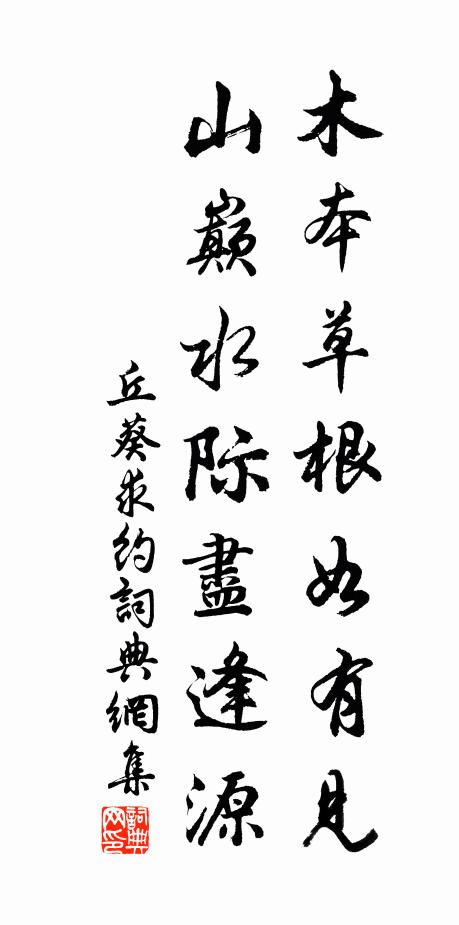 木本草根如有見
山巔水际盡逢源
丘葵求约詞典網集
詞典
网印